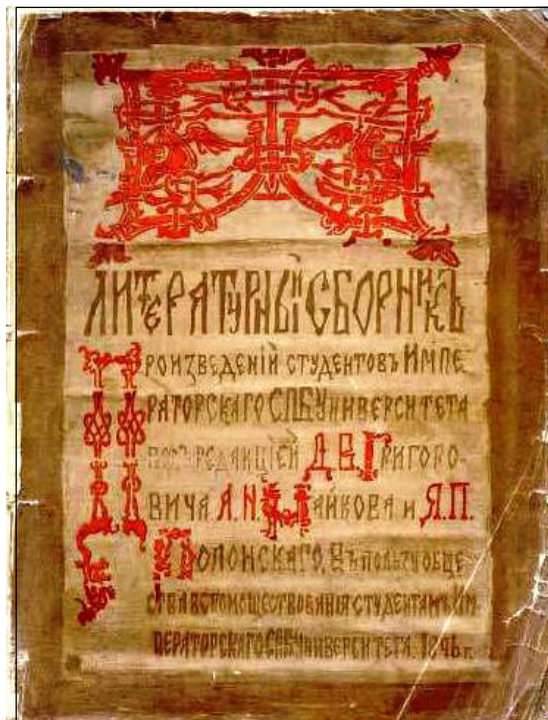 ЛИТЕРАТУРНЫЙ СБОРНИКЪ
ПРОИЗВЕДЕНІЙ СТУДЕНТОВЪ ИМПЕ
РАТОРСКАГО СПБ УНИВЕРСИТЕТА
ПОДЪ РЕДАКЦІЕЙ Д.В. ГРИГОРО-
ВИЧА А.Н. МАЙКОВА и Я.П.
ПОЛОНСКАГО. ВЪ ПОЛЬЗУ ОБЩЕ
СТВА ВСПОМОЩЕСТВОВАНІЯ СТУДЕНТАМЪ ИМ-
ПЕРАТОРСКАГО СПБ УНИВЕРСИТЕТА. 1896 г.